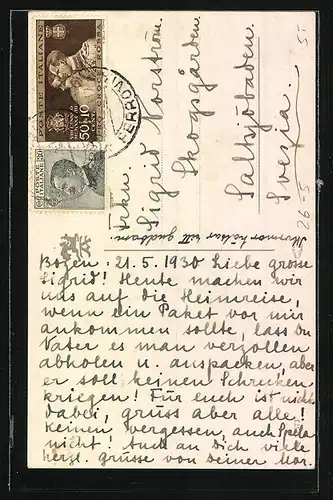 POSTE ITALIANE
50+10
FERROVIA
Frkn.
Sigrid Norström.
Skogsgården
Saltsjöbaden.
Svezia.
26-5
5-
Mormor hälsar till gudbarn
Bozen. 21.5.1930 Liebe grosse
Sigrid! Heute machen wir
uns auf die Heimreise,
wenn ein Paket vor mir
ankommen sollte, lass Du
Vater es man verzollen
abholen u. auspacken, aber
er soll keinen Schrecken
kriegen! Für euch ist nichts
dabei, gruss aber alle!
Keinen vergessen, auch
nicht! Auch an Dich viele
herzl. grüsse von deiner Mor.